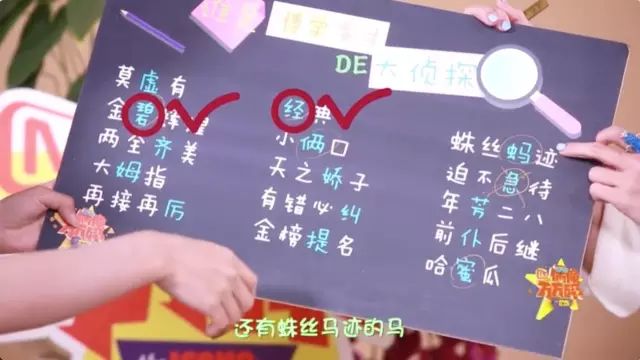 DE大侦探
莫虚有
金碧辉煌
两全齐美
大姆指
再接再厉
经典
小俩口
天之娇子
有错必纠
金榜提名
蛛丝蚂迹
迫不急待
年芳二八
前仆后继
哈蜜瓜
还有蛛丝马迹的马